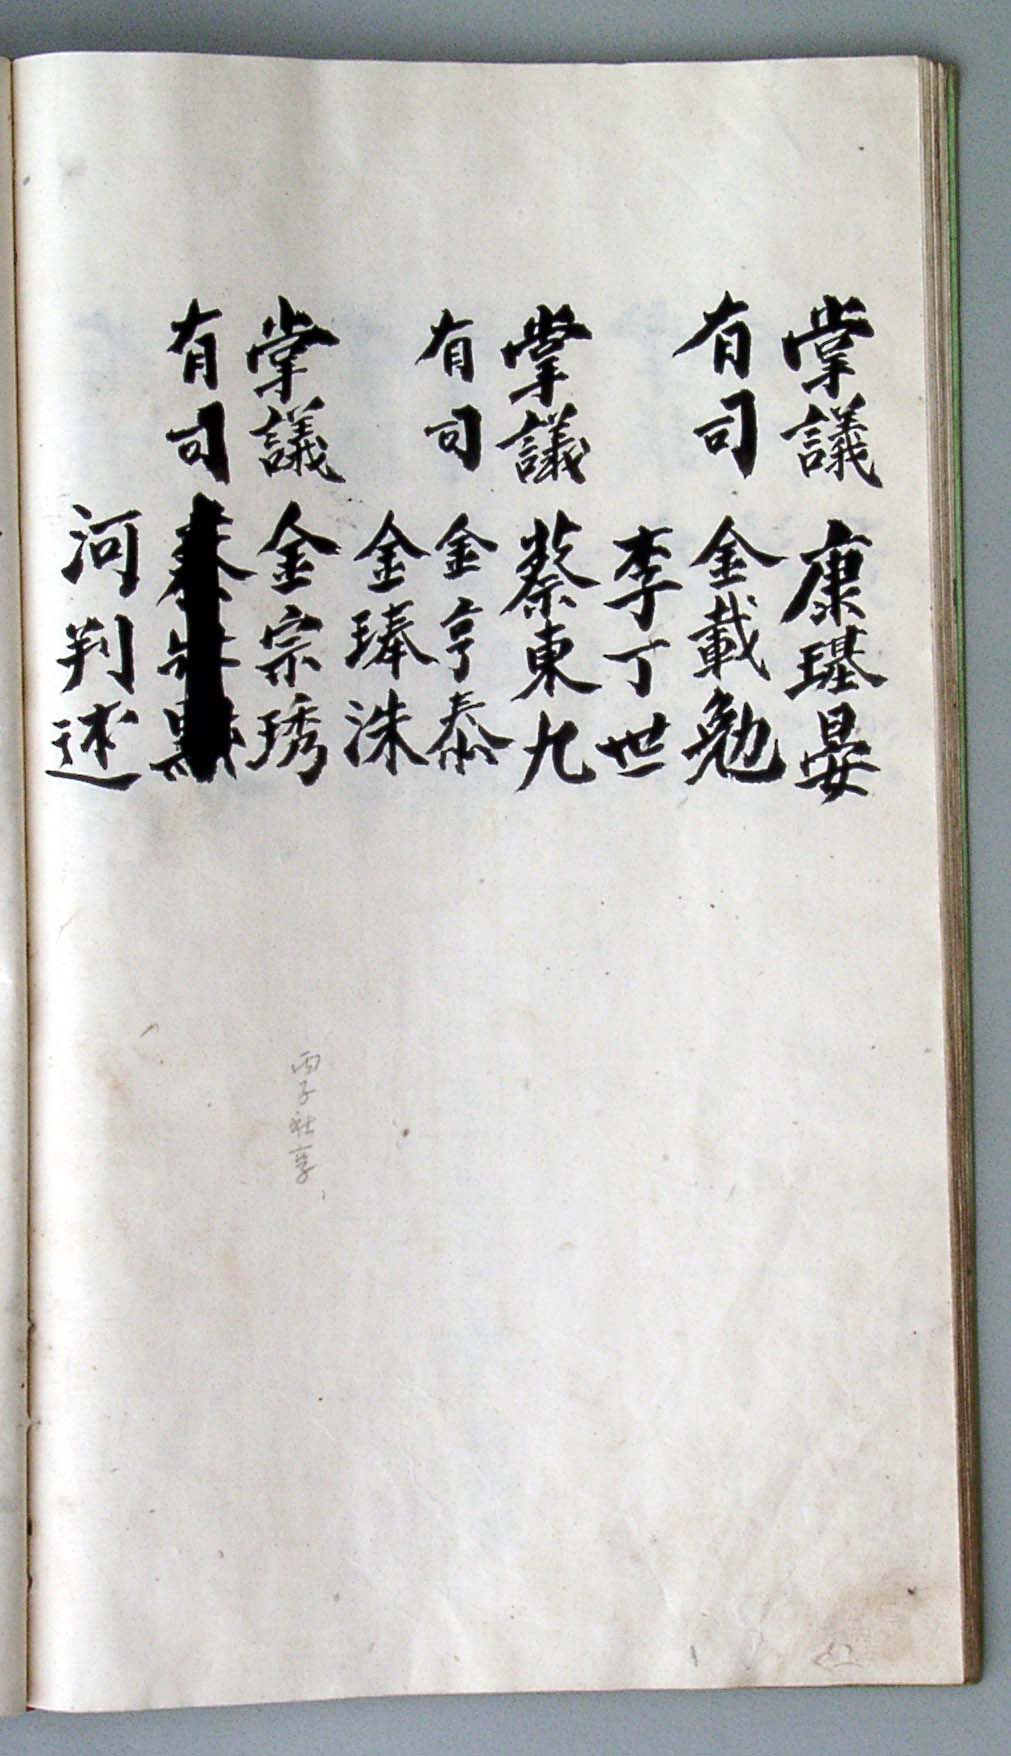 掌議 康瑾晏
有司 金載勉
李丁世
掌議 蔡東九
有司 金亨泰
金琫洙
掌議 金宗琇
有司
河判述
丙子社享